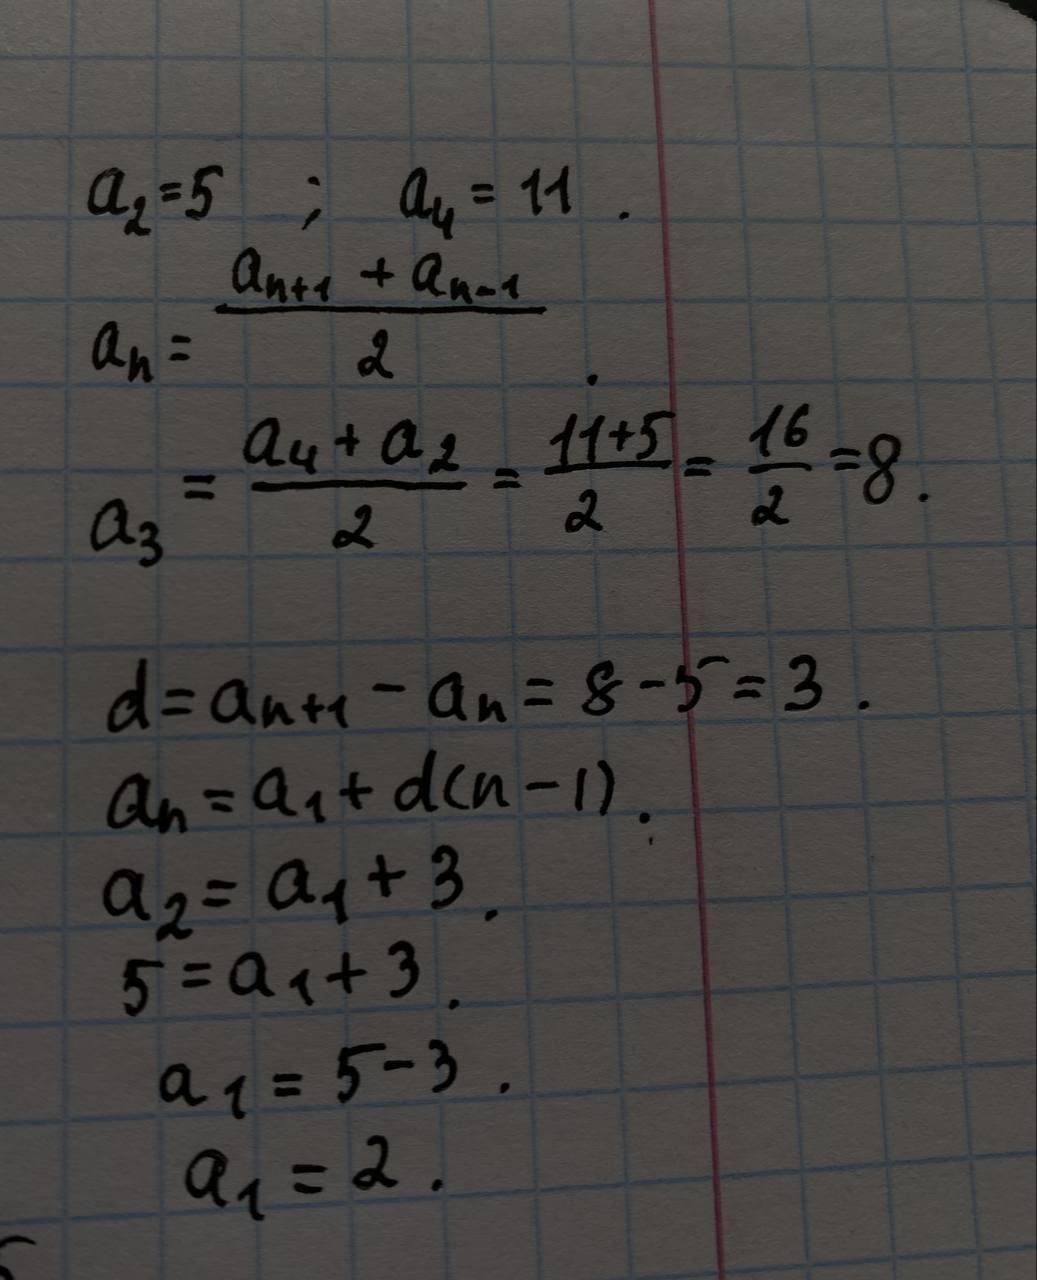 a₂=5 ; a₄ = 11 .
aₙ = (aₙ₊₁ + aₙ₋₁)/2 .
a₃ = (a₄ + a₂)/2 = (11+5)/2 = 16/2 = 8 .
d = aₙ₊₁ − aₙ = 8 − 5 = 3 .
aₙ = a₁ + d(n − 1) .
a₂ = a₁ + 3 .
5 = a₁ + 3 .
a₁ = 5 − 3 .
a₁ = 2 .